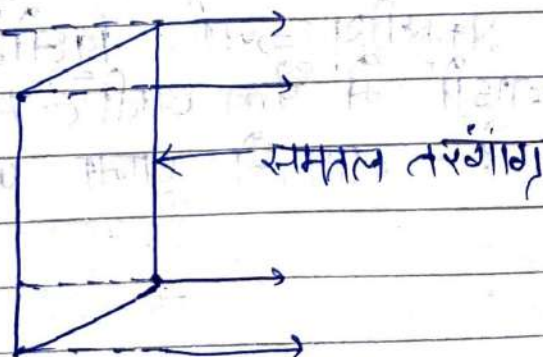 समतल तरंगाग्र